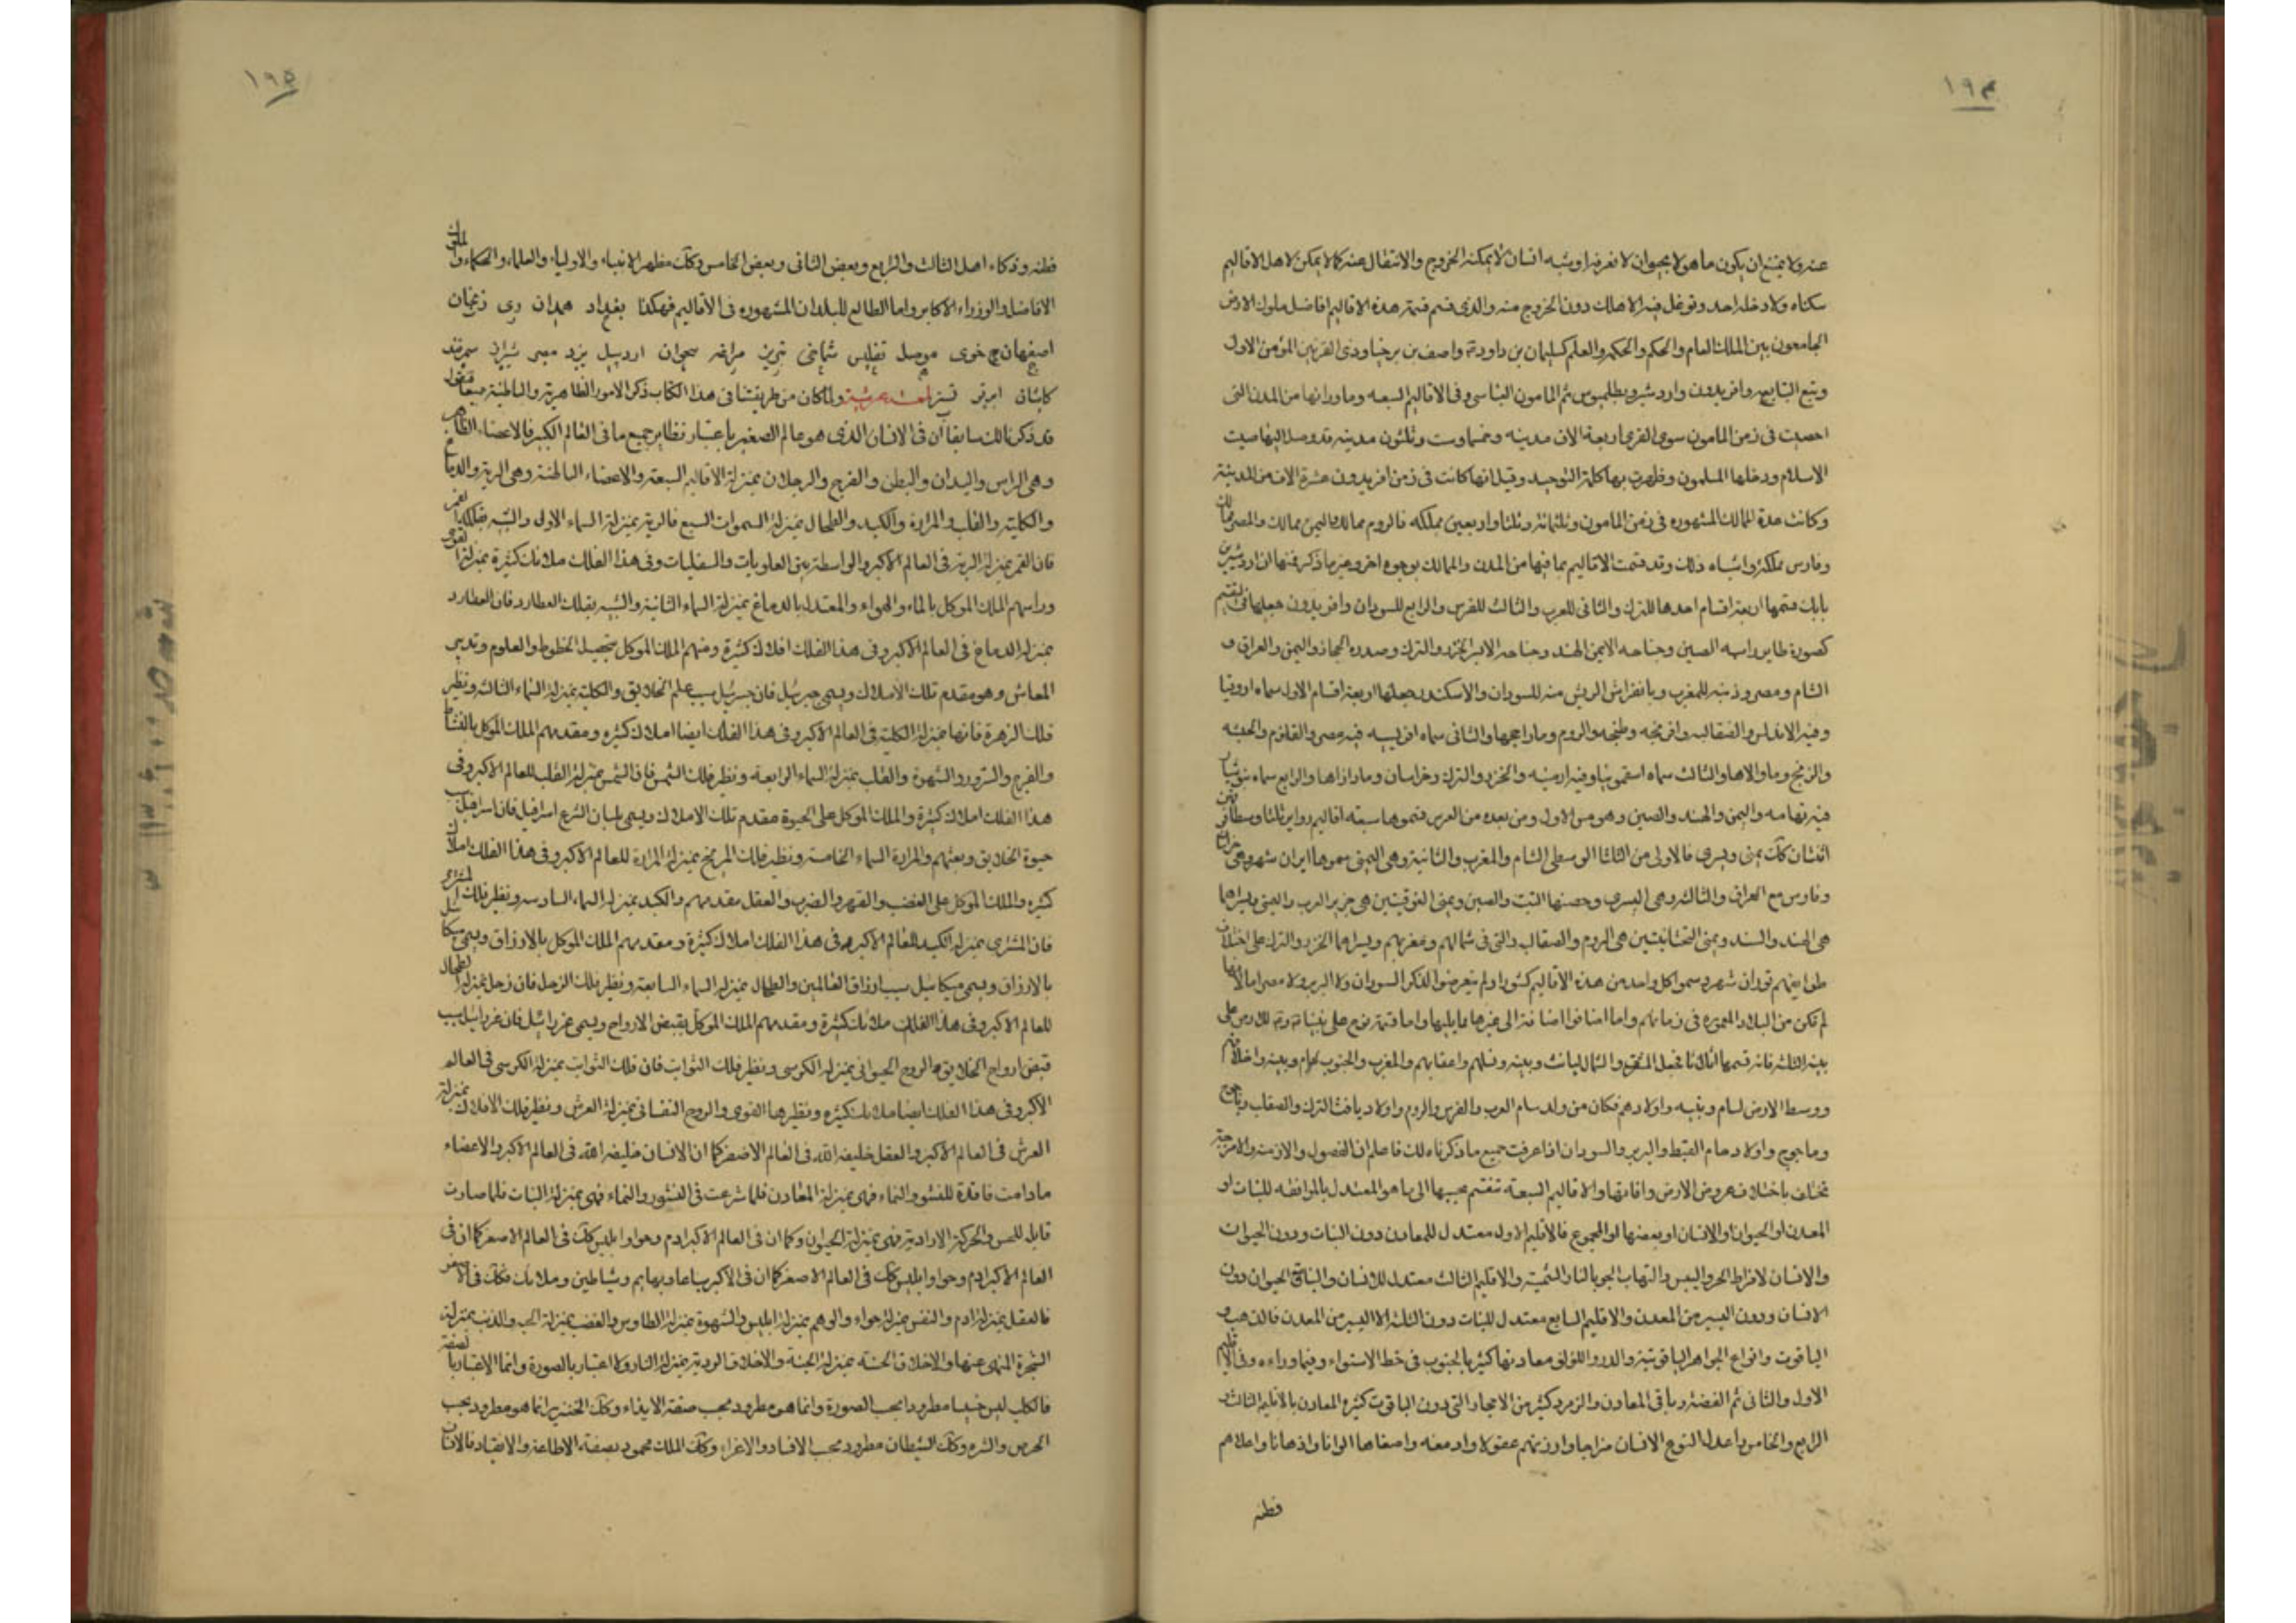 ١٩٤
عنه ولا يمتنع ان يكون ما هو لا حيوان لا نعرفه او شبه انسان لا يمكنه الخروج والانتقال عنه كما لا يمكن لاهل الاقاليم
سكناه ولا دخله احد وتوغل فيه الا هلك دون الخروج منه والذى قسم قسمة هذه الاقاليم افاضل ملوك الارض
الجامعون بين الملك العام والحكم والحكمه والعلم كسليمان بن داود وآصف بن برخيا وذى القرنين المؤمن الاول
وتبع التبابعه وافريدون واردشير وبطلميوس ثم المامون العباسى وفى الاقاليم السبعه وما ورائها من المدن التى
احصيت فى زمن المامون سوى القرى اربعة الاف مدينه وخمسا وست وثلثون مدينه قد وصل اليها صيت
الاسلام ودخلها المسلمون وظهرت بها كلمة التوحيد وقيل انها كانت فى زمن افريدون عشرة الاف من المدينة
وكانت عدة الممالك المشهوره فى زمن المامون وثلثمائة وثلثا واربعين مملكه فالروم ممالك واليمن ممالك والمصر ممالك
وفارس مملكة واشباه ذلك وقد قسمت الاقاليم بما فيها من المدن والممالك بوجوه اخر وغير ما ذكر فمنها ان اردشير بن
بابك قسمها اربعة اقسام احدها للترك والثانى للعرب والثالث للفرس والرابع للسودان وافريدون جعلها فى التقسيم
كصورة طاير راسه الصين وجناحه الايمن الهند وجناحه الايسر الخزر والترك وصدره الحجاز واليمن والعراق و
الشام ومصر وذنبه للمغرب وبانفراش الريش منه للسودان والاسكندر جعلها اربعة اقسام الاول سماه اروپيا
وفيه الاندلس والصقالبه وافرنجه وطنجه والروم وما راجعها والثانى سماه افريبيه فيه مصر والقلزم والحبشه
والزنج وما والاها والثالث سماه اسقوتيا وفيه ارمنيه والخزر والترك وخراسان وما وازاها والرابع سماه
فيه تهامه واليمن والهند والصين وهو من الاول ومن بعده من الفرس قسموها سبعة اقاليم دواير ثلثا وسطا
اثنتان كآت يمنى ويسرى فالاولى من الثلثا الوسطى الشام والمغرب والثانية وهى اليمنى سموها ايران شهر وهى
وفارس مع العراق والثالث وهى اليسرى وحصنها التبت والصين ويمنى الفوقيتين هى جزير العرب واليمن ويسراهما
هى الهند والسند ويمنى التحتانيتين هى الروم والصقالب والتى فى شمالهم ومغربهم ويسراهما الخزر والترك على اختلاف
طوايفهم توران شهر وسموا كل واحد من هذه الاقاليم كشورا ولم يتعرضوا لذكر السودان ولا البربر ولا مصر اما لانها
لم تكن من البلاد المعموره فى زمانهم واما اضافوا اضافة الى غيرها مما يليها واما قسمة نوح على نبينا وعليه السلام على
بنيه الثلثه فانه قسمها اثلاثا فجعل المشرق والشمال ليافث وبنيه ونسلهم واعقابهم والمغرب والجنوب لحام وبنيه واخلافهم
ووسط الارض لسام وبنيه واولادهم فكان من ولد سام العرب والفرس والروم واولاد يافث الترك والصقاب وياجوج
وماجوج واولاد حام القبط والبربر والسودان اذا عرفت جميع ما ذكرناه لك فاعلم ان الفصول والازمنه والامزجة
تختلف باختلاف عروض الارض وافاتها والاقاليم السبعة تنقسم بحسبها الى ما هو المعتدل بالموافقه للنبات او
المعدن او الحيوان او الانسان او بعضها او المجموع فالاقليم الاول معتدل للمعادن دون النبات ودون الحيوان
والانسان لافراط الحر واليبس والتهاب الجو بالنار الشمسية والاقليم الثالث معتدل للانسان والباقى الحيوان دون
الانسان ودون اليسير من المعدن والاقليم السابع معتدل للنبات دون الثلثه الا اليسير من المعدن فالذهب و
الياقوت وانواع الجواهر الياقوتية والدر واللؤلؤ معادنها كثيرا بالجنوب فى خط الاستواء وفيما وراءه وفى الاقليم
الاول والثانى ثم الفضه وباقى المعادن والزمرد كثير من الاحجار التى دون الياقوت كثيره المعادن بالاقليم الثالث و
الرابع والخامس واعدل النوع الانسان مزاجا وارزنهم عقولا وادمغه واصفاها الوانا واذهانا واعلاهم
فطنه
١٩٥
فطنه وذكاء اهل الثالث والرابع وبعض الثانى وبعض الخامس وكآت مظهر الانبياء والاولياء والعلماء والحكماء والملوك
الافاضل والوزراء الاكابر واما الطالع للبلدان المشهوره فى الاقاليم فهكذا بغداد همدان رى زنجان
اصفهان خوى موصل تفليس شماخى تبريز مراغه اردبيل يزد مصر شيراز سمرقند
كاشان ابرقو تستر لمعة عرشية ولما كان من طريقتنا فى هذا الكتاب ذكر الامور الظاهرية والباطنية جميعا فنقول
قد ذكرنا لك سابقا ان فى الانسان الذى هو عالم الصغير باعتبار نظاير جميع ما فى العالم الكبير فالاعضاء الظاهره
وهى الراس واليدان والبطن والفرج والرجلان بمنزلة الاقاليم السبعة والاعضاء الباطنة وهى الرية والدماغ
والكلية والقلب والمرارة والكبد والطحال بمنزلة السموات السبع فالرية بمنزلة السماء الاول والشبه بفلك القمر
فان القمر بمنزلة الرية فى العالم الاكبر والواسطة بين العلويات والسفليات وفى هذا الفلك ملائك كثيرة بمنزلة القوى
وراسهم الملك الموكل بالماء والهواء والمعتدل بالدماغ بمنزلة السماء الثانية والشبيه بفلك العطارد فان العطارد
بمنزلة الدماغ فى العالم الاكبر وفى هذا الفلك افلاك كثيرة ومنهم الملك الموكل بتحصيل الخطوط والعلوم وتدبير
المعاش وهو مقدم تلك الاملاك ويسمى جبرئيل فان جبرئيل سبب علم الخلايق والكلية بمنزلة السماء الثالث ونظير
فلك الزهرة فانها بمنزلة الكلية فى العالم الاكبر وفى هذا الفلك ايضا املاك كثيره ومقدمهم الملك الموكل بالنشاط
والفرح والسرور والشهوة والقلب بمنزلة السماء الرابعة ونظير فلك الشمس فان الشمس بمنزلة القلب للعالم الاكبر وفى
هذا الفلك املاك كثيرة والملك الموكل على الحيوة مقدم تلك الاملاك ويسمى بلسان الشرع اسرافيل فان اسرافيل سبب
حيوة الخلايق وبعثهم والمرارة السماء الخامسة ونظير فلك المريخ بمنزلة المرارة للعالم الاكبر وفى هذا الفلك املاك
كثيره والملك الموكل على الغضب والقهر والضرب والعقل مقدمهم والكبد بمنزلة السماء السادسه ونظير فلك المشترى
فان المشترى بمنزلة الكبد للعالم الاكبر وفى هذا الفلك املاك كثيرة ومقدمهم الملك الموكل بالارزاق ويسمى ميكائيل
بالارزاق ويسمى ميكائيل سبب ارزاق العالمين والطحال بمنزلة السماء السابعة ونظير فلك الزحل فان زحل بمنزلة الطحال
للعالم الاكبر وفى هذا الفلك ملائك كثيرة ومقدمهم الملك الموكل بقبض الارواح ويسمى عزرائيل فان عزرائيل سبب
قبض ارواح الخلايق والروح الحيوانى بمنزلة الكرسى ونظير فلك الثوابت فان فلك الثوابت بمنزلة الكرسى فى العالم
الاكبر وفى هذا الفلك ايضا ملائك كثيره ونظيرها القوى والروح النفسانى بمنزلة العرش ونظير فلك الافلاك بمنزلة
العرش فى العالم الاكبر والعقل خليفة الله فى العالم الاصغر كما ان الانسان خليفه الله فى العالم الاكبر والاعضاء
مادامت فاقدة للنشو والنماء فهى بمنزلة المعادن فلما شرعت فى النشور والنماء فهى بمنزلة النبات فلما صارت
قابلة للحس والحركة الارادية فهى بمنزلة الحيوان وكما ان فى العالم الاكبر ادم وحوا وابليس كآت فى العالم الاصغر كما ان فى
العالم الاكبر ادم وحوا وابليس كآت فى العالم الاصغر كما ان فى الاكبر سباعا وبهايم وشياطين وملائك فكآت فى الاصغر
فالعقل بمنزلة ادم والنفس بمنزلة حواء والوهم بمنزلة ابليس والشهوة بمنزلة الطاوس والغضب بمنزلة الحية والذنب بمنزلة
الشجرة المنهى عنها والاخلاق الحسنه بمنزلة الجنة والاخلاق الردية بمنزلة النار ولا اعتبار بالصورة وانما الاعتبار بالصفة
فالكلب ليس خسيسا مطرودا بحسب الصورة وانما هو مطرود بحسب صفة الايذاء وكآت الخنزير انما هو مطرود بحسب
الحرص والشره وكآت الشيطان مطرود بحسب الافساد والاغراء وكآت الملك محمود بصفة الاطاعة والانقياد فالانسان